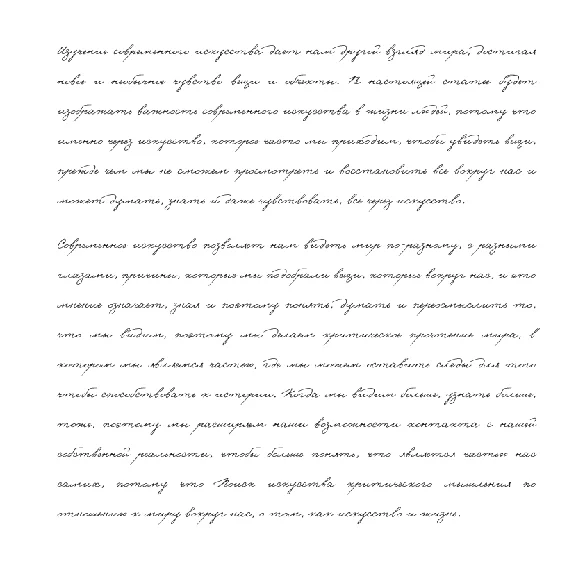 Изучение современного искусства дает нам другой взгляд мира, достигая
новые и необычные чувства вещи и объекты. В настоящей статье будет
изображать важность современного искусства в жизни людей, потому что
именно через искусство, которое часто мы приходим, чтобы увидеть вещи,
прежде чем мы не сможем просмотреть и восстановить все вокруг нас и
может думать, знать и даже чувствовать, все через искусство.
Современное искусство позволяет нам видеть мир по-разному, с разными
глазами, причины, которые мы подобрали вещи, которые вокруг нас, и это
мнение означает, зная и поэтому понять, думать и переосмыслить то,
что мы видим, поэтому мы делаем критическое прочтение мира, в
котором мы являемся частью, где мы можем оставить следы для того
чтобы способствовать к истории. Когда мы видим больше, узнать больше,
тоже, поэтому мы расширяем наши возможности контакта с нашей
собственной реальности, чтобы больше понять, что является частью нас
самих, потому что Поиск искусства критического мышления по
отношению к миру вокруг нас, о том, как искусство и жизнь.